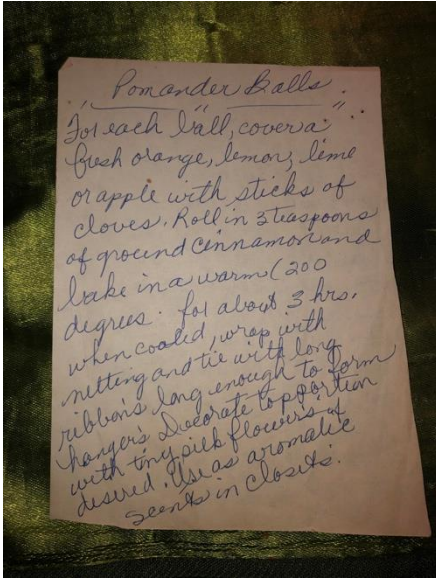 Pomander Balls.
For each ball, cover a
fresh orange, lemon, lime
or apple with sticks of
cloves. Roll in 3 teaspoons
of ground cinnamon and
bake in a warm (200
degrees. for about 3 hrs.
when cooled, wrap with
netting and tie with long
ribbons long enough to form
hangers. Decorate top portion
with tiny silk flowers if
desired. Use as aromatic
scents in closets.